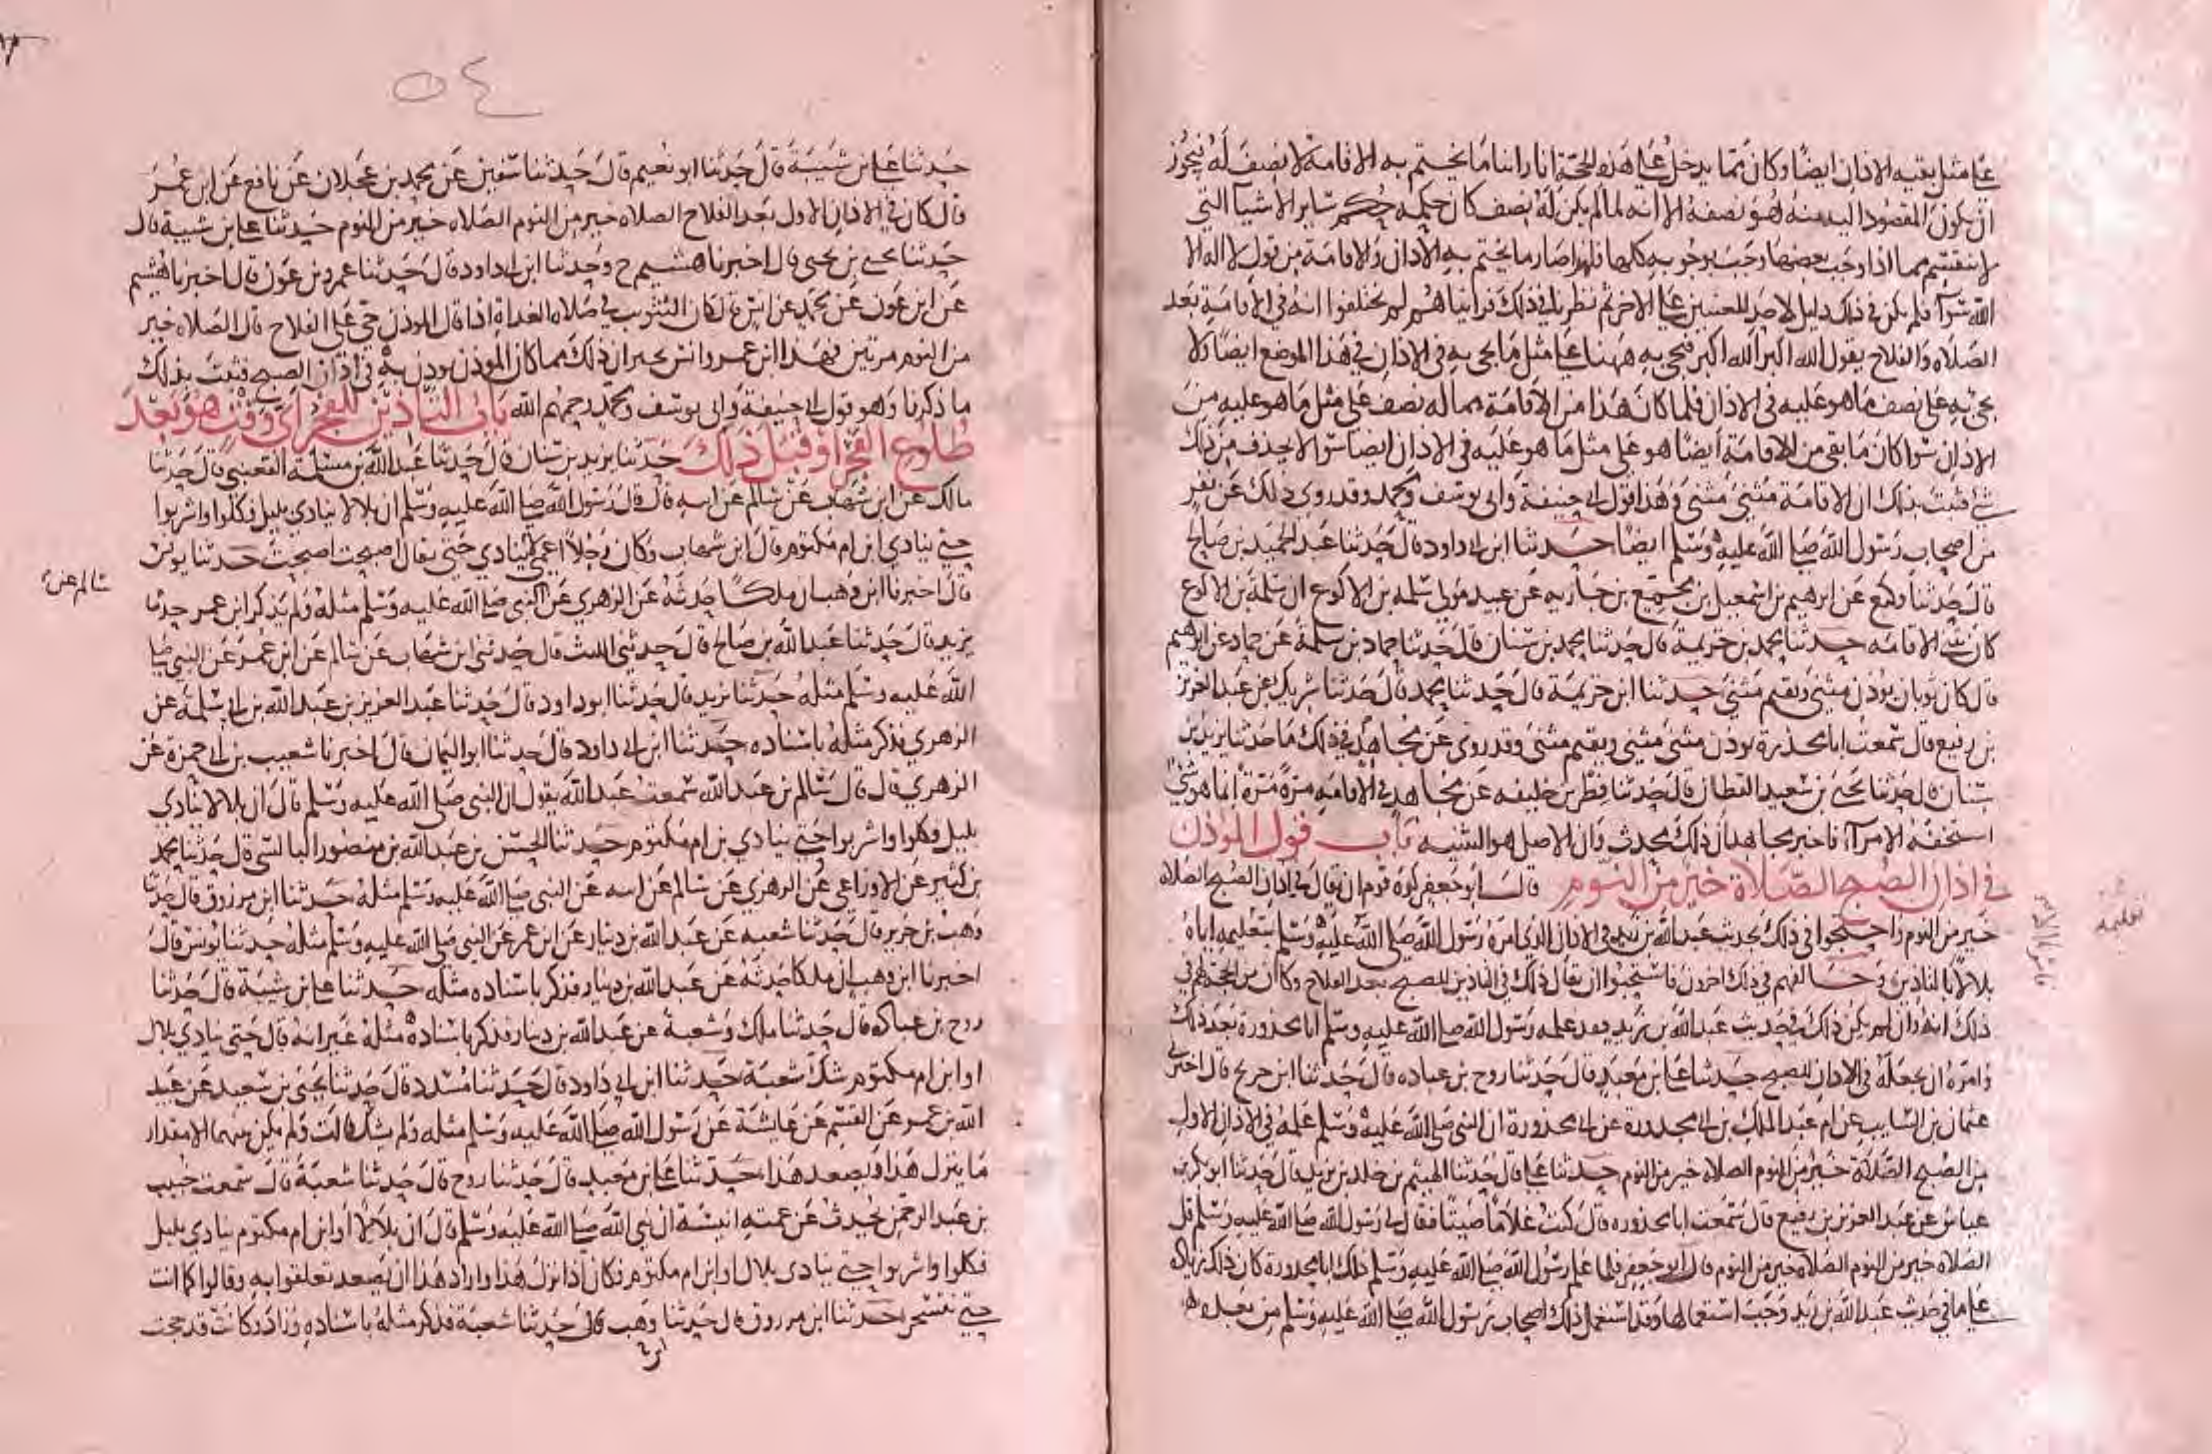 على مثل بقيه الاذان ايضا وكان مما يدخل على هذه الحجة انا راينا ما يختم به الاقامة لا نصف له فيجوز
ان يكون المقصود اليه منه هو نصفه الا انه لما لم يكن له نصف كان حكمه حكم سائر الاشيا التي
لا تنقسم مما اذا وجب بعضها وجب بوجوبه كلها فلهذا صار ما يختم به الاذان والاقامة من قول لا اله الا
الله سوآ فلم يكن في ذلك دليل لاحد المعنيين على الاخر ثم نظرنا في ذلك فراينا هم لم يختلفوا انه في الاقامة بعد
الصلاه والفلاح يقول الله اكبر الله اكبر فيجي به ههنا على مثل ما يجي به في الاذان في هذا الموضع ايضا ولا
يجي به على نصف ما هو عليه في الاذان فلما كان هذا من الاقامة مما له نصف على مثل ما هو عليه من
الاذان سوا كان ما بقي من الاقامة ايضا هو على مثل ما هو عليه في الاذان ايضا سوا لا يحذف من ذلك
شي فثبت بذلك ان الاقامة مثنى مثنى وهذا قول ابي حنيفة وابي يوسف ومحمد وقد روى ذلك عن نفر
من اصحاب رسول الله صلى الله عليه وسلم ايضا حدثنا ابن ابي داود قال حدثنا عبد الحميد بن صالح
قال حدثنا وكيع عن ابرهيم بن اسمعيل بن مجمع بن جاريه عن عبيد مولى سلمه بن الاكوع ان سلمة بن الاكوع
كان يثني الاقامه حدثنا محمد بن خزيمة قال حدثنا محمد بن سنان قال حدثنا حماد بن سلمة عن حماد عن ابرهيم
قال كان ثوبان يوذن مثنى ويقيم مثنى حدثنا ابن خزيمة قال حدثنا محمد قال حدثنا شريك عن عبد العزيز
بن رفيع قال سمعت ابا محذورة يوذن مثنى مثنى ويقيم مثنى وقد روى عن مجاهد في ذلك ما حدثنا يزيد بن
سنان قال حدثنا يحيى بن سعيد القطان قال حدثنا فطر بن خليفه عن مجاهد في الاقامه مرة مرة انما هو شي
استخفه الامرآ فاخبر مجاهد ان ذلك محدث وان الاصل هو التثنيه باب قول الموذن
في اذان الصبح الصلاة خير من النوم قال ابو جعفر كره قوم ان يقال في اذان الصبح الصلاه
خير من النوم واحتجوا في ذلك بحديث عبد الله بن زيد في الاذان الذي امره رسول الله صلى الله عليه وسلم بتعليمه اياه
بلالا بالتاذين وخالفهم في ذلك اخرون فاستحبوا ان يقال ذلك في التاذين للصبح بعد الفلاح وكان من الحجة لهم في
ذلك انه وان لم يكن ذلك في حديث عبد الله بن زيد فقد علمه رسول الله صلى الله عليه وسلم ابا محذورة بعد ذلك
وامره ان يجعله في الاذان للصبح حدثنا علي بن معبد قال حدثنا روح بن عباده قال حدثنا ابن جريج قال اخبرني
عثمان بن السايب عن ام عبد الملك بن ابي محذورة عن ابي محذورة ان النبي صلى الله عليه وسلم علمه في الاذان الاول
من الصبح الصلاة خير من النوم الصلاه خير من النوم حدثنا علي قال حدثنا الهيثم بن خالد بن يزيد قال حدثنا ابو بكر بن
عياش عن عبد العزيز بن رفيع قال سمعت ابا محذوره قال كنت غلاما صيتا فقال لي رسول الله صلى الله عليه وسلم قل
الصلاه خير من النوم الصلاه خير من النوم قال ابو جعفر فلما علم رسول الله صلى الله عليه وسلم ذلك ابا محذورة كان ذلك زيادة
على ما في حديث عبد الله بن زيد ووجب استعمالها وقد استعمل ذلك اصحاب رسول الله صلى الله عليه وسلم من بعده
تعليمه
٥٤
حدثنا علي بن شيبة قال حدثنا ابو نعيم قال حدثنا سفين عن محمد بن عجلان عن نافع عن ابن عمر
قال كان في الاذان الاول بعد الفلاح الصلاه خير من النوم الصلاه خير من النوم حدثنا علي بن شيبة قال
حدثنا يحيى بن يحيى قال اخبرنا هشيم ح وحدثنا ابن ابي داود قال حدثنا عمرو بن عون قال اخبرنا هشيم
عن ابن عون عن محمد عن انس قال كان التثويب في صلاه الغداة اذا قال الموذن حي على الفلاح قال الصلاه خير
من النوم مرتين فهذا ابن عمر وانس يخبران ذلك مما كان الموذن يوذن به في اذان الصبح فثبت بذلك
ما ذكرنا وهو قول ابي حنيفة وابي يوسف ومحمد رحمهم الله باب التاذين للفجر اي وقت هو بعد
طلوع الفجر او قبل ذلك حدثنا يزيد بن سنان قال حدثنا عبد الله بن مسلمة القعنبي قال حدثنا
مالك عن ابن شهاب عن سالم عن ابيه قال قال رسول الله صلى الله عليه وسلم ان بلالا ينادي بليل فكلوا واشربوا
حتى ينادي ابن ام مكتوم قال ابن شهاب وكان رجلا اعمى لا ينادي حتى يقال اصبحت اصبحت حدثنا يونس
قال اخبرنا ابن وهب ان ملكا حدثه عن الزهري عن النبي صلى الله عليه وسلم مثله ولم يذكر ابن عمر حدثنا
سالم عن
يزيد قال حدثنا عبد الله بن صالح قال حدثني الليث قال حدثني ابن شهاب عن سالم عن ابن عمر عن النبي صلى
الله عليه وسلم مثله حدثنا يزيد قال حدثنا ابو داود قال حدثنا عبد العزيز بن عبد الله بن ابي سلمة عن
الزهري فذكر مثله باسناده حدثنا ابن ابي داود قال حدثنا ابو اليمان قال اخبرنا شعيب بن ابي حمزة عن
الزهري قال قال سالم بن عبد الله سمعت عبد الله يقول ان النبي صلى الله عليه وسلم قال ان بلالا ينادي
بليل فكلوا واشربوا حتى ينادي بن ام مكتوم حدثنا الحسن بن عبد الله بن منصور البالسي قال حدثنا محمد
بن كثير عن الاوزاعي عن الزهري عن سالم عن ابيه عن النبي صلى الله عليه وسلم مثله حدثنا ابن مرزوق قال حدثنا
وهب بن جرير قال حدثنا شعبه عن عبد الله بن دينار عن ابن عمر عن النبي صلى الله عليه وسلم مثله حدثنا يونس قال
اخبرنا ابن وهب ان ملكا حدثه عن عبد الله بن دينار فذكر باسناده مثله حدثنا علي بن شيبة قال حدثنا
روح بن عباده قال حدثنا ملك وشعبة عن عبد الله بن دينار فذكر باسناده مثله غير انه قال حتى ينادي بلال
او ابن ام مكتوم شك شعبة حدثنا ابن ابي داود قال حدثنا مسدد قال حدثنا يحيى بن سعيد عن عبيد
الله بن عمر عن القسم عن عايشة عن رسول الله صلى الله عليه وسلم مثله ولم يشك قالت ولم يكن بينهما الا مقدار
ما ينزل هذا ويصعد هذا حدثنا علي بن معبد قال حدثنا روح قال حدثنا شعبة قال سمعت خبيب
بن عبد الرحمن يحدث عن عمته انيسة ان نبي الله صلى الله عليه وسلم قال ان بلالا او ابن ام مكتوم ينادي بليل
فكلوا واشربوا حتى ينادي بلال او ابن ام مكتوم فكان اذا نزل هذا واراد هذا ان يصعد تعلقوا به وقالوا كما انت
حتى نتسحر حدثنا ابن مرزوق قال حدثنا وهب قال حدثنا شعبة فذكر مثله باسناده وزاد وكانت قد حجت